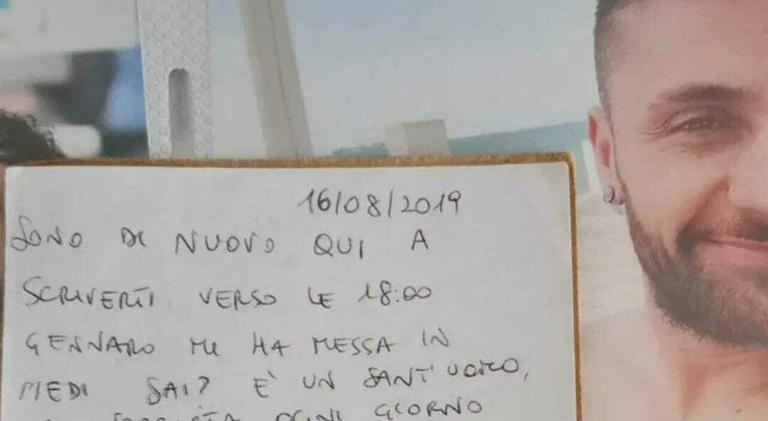 16/08/2019
SONO DI NUOVO QUI A
SCRIVERTI. VERSO LE 18:00
GENNARO MI HA MESSA IN
PIEDI SAI? E' UN SANT'UOMO,
OGNI GIORNO